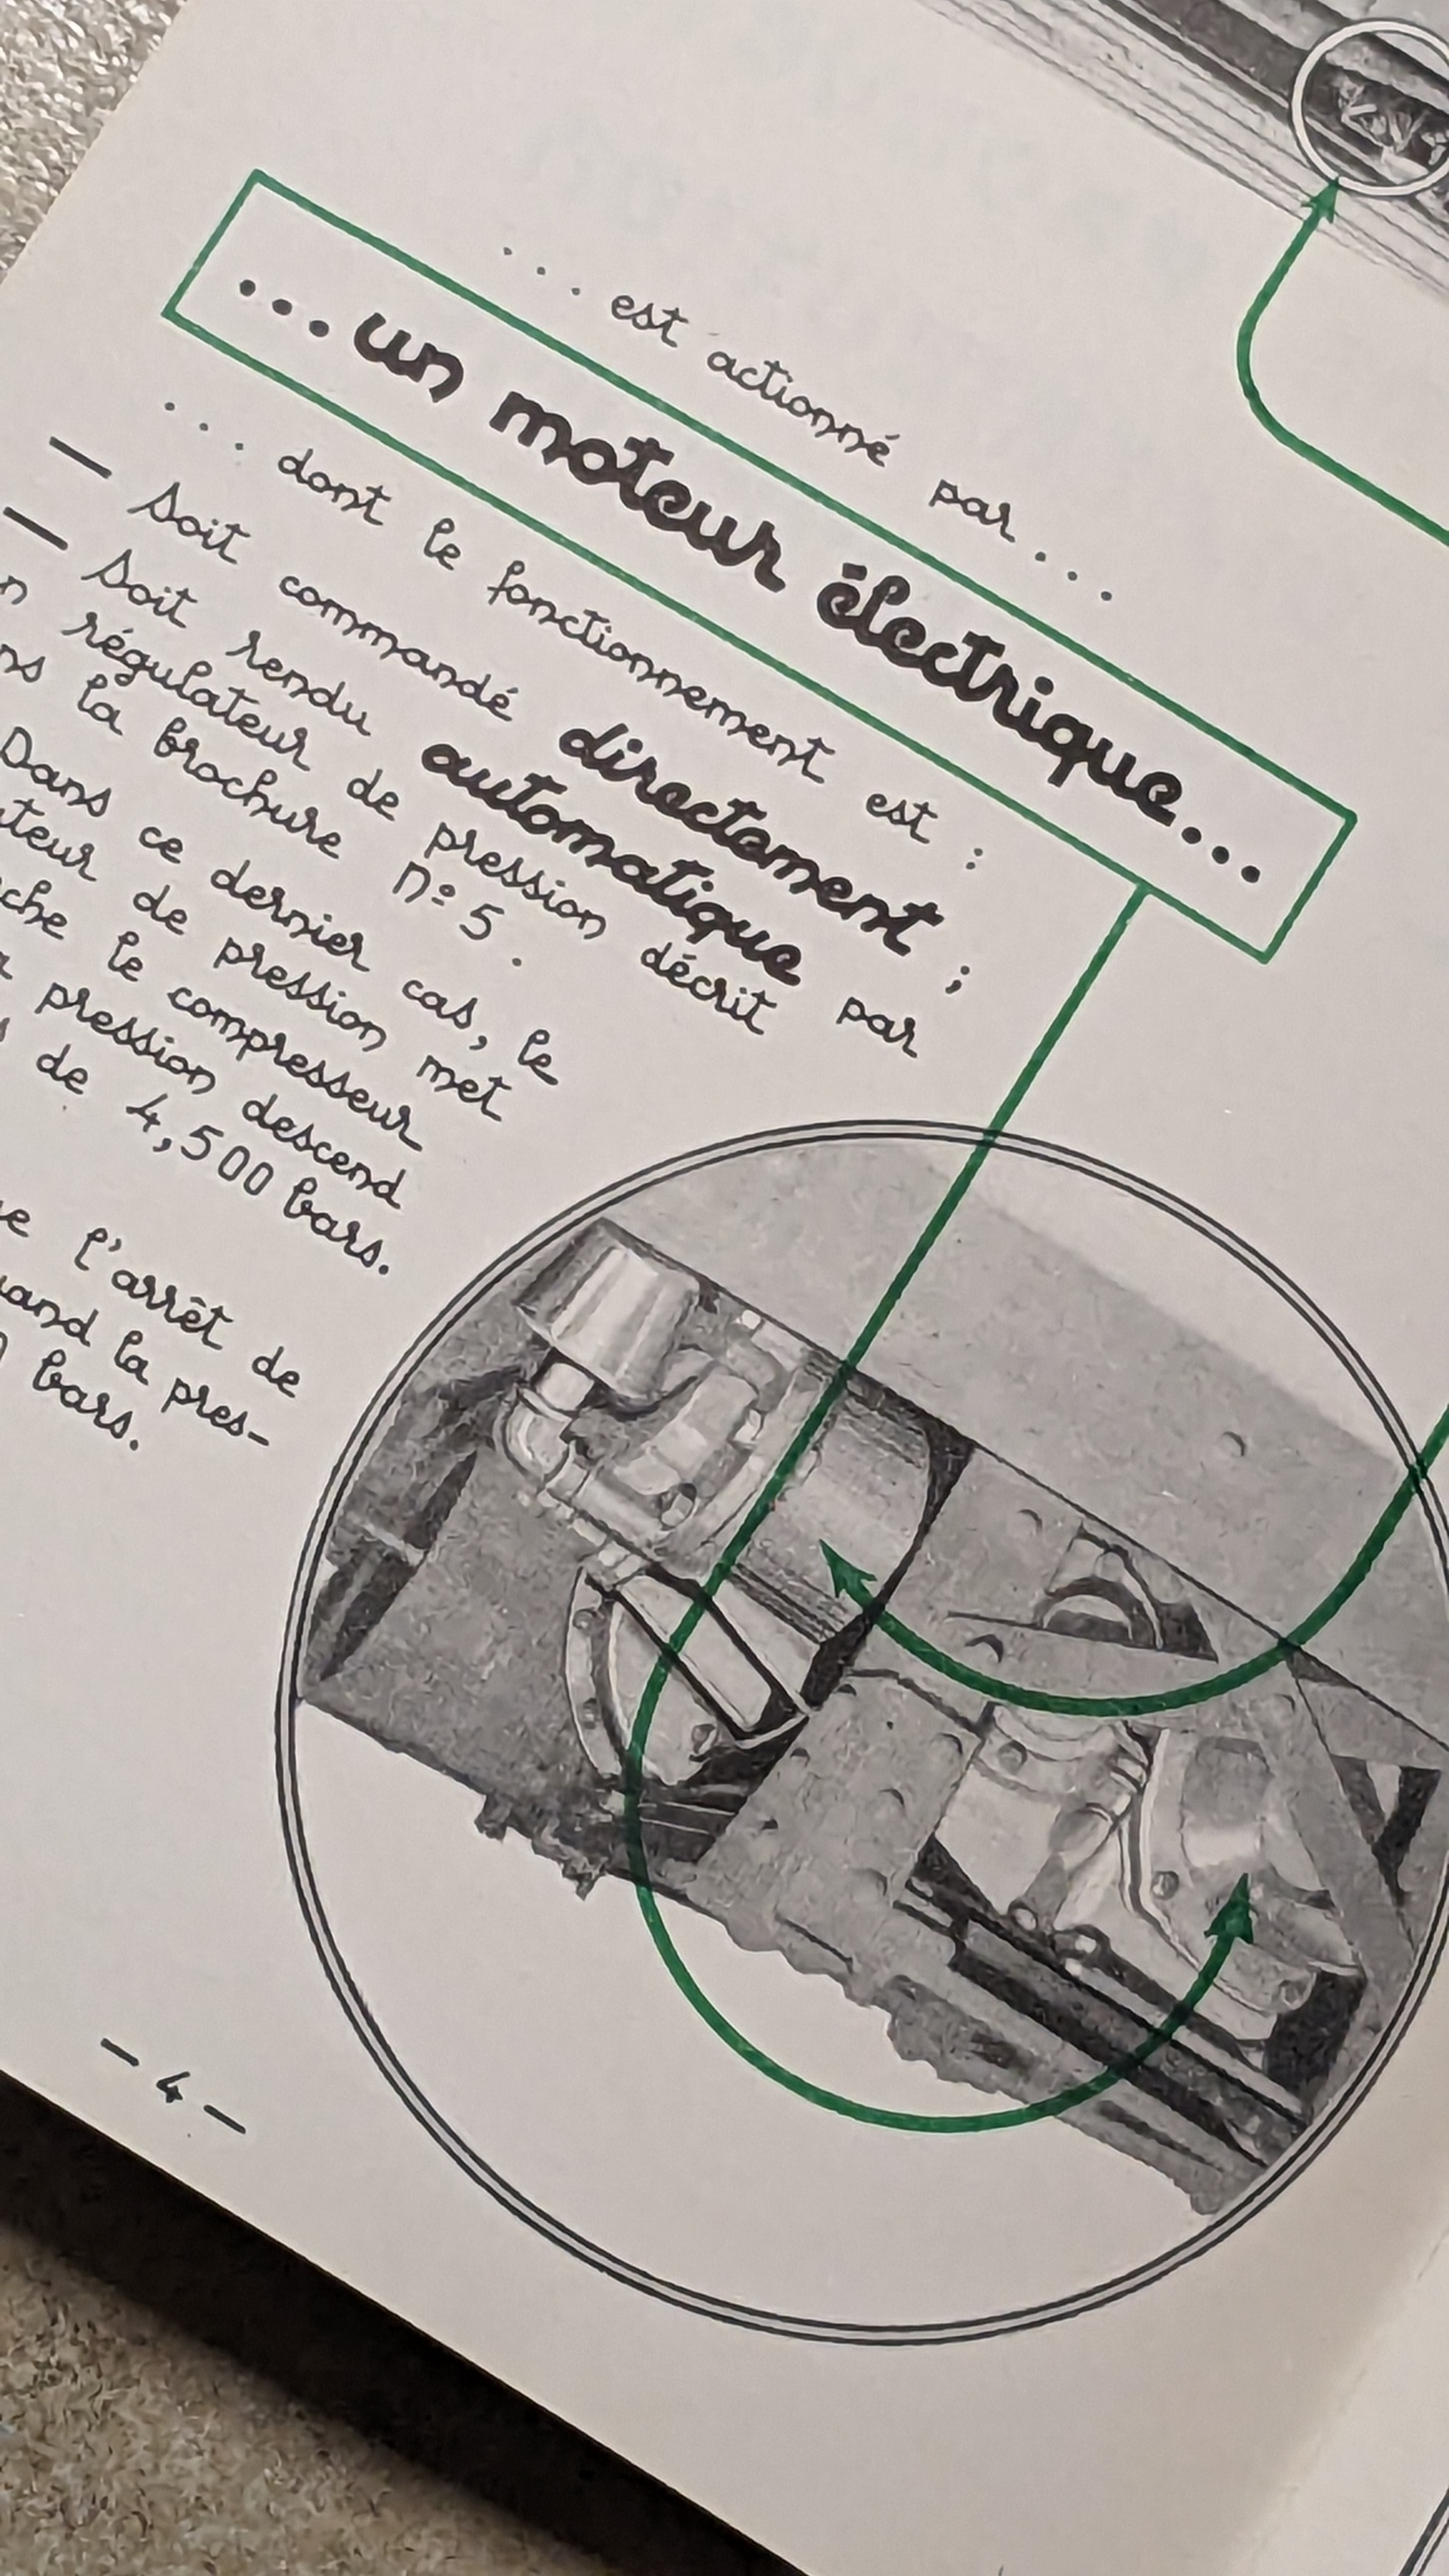 ... est actionné par...
... un moteur électrique...
... dont le fonctionnement est :
— Soit commandé directement ;
— Soit rendu automatique par
régulateur de pression décrit
la brochure n° 5.
Dans ce dernier cas, le
de pression met
le compresseur
pression descend
de 4,500 bars.
l'arrêt de
la pres-
bars.
— 4 —